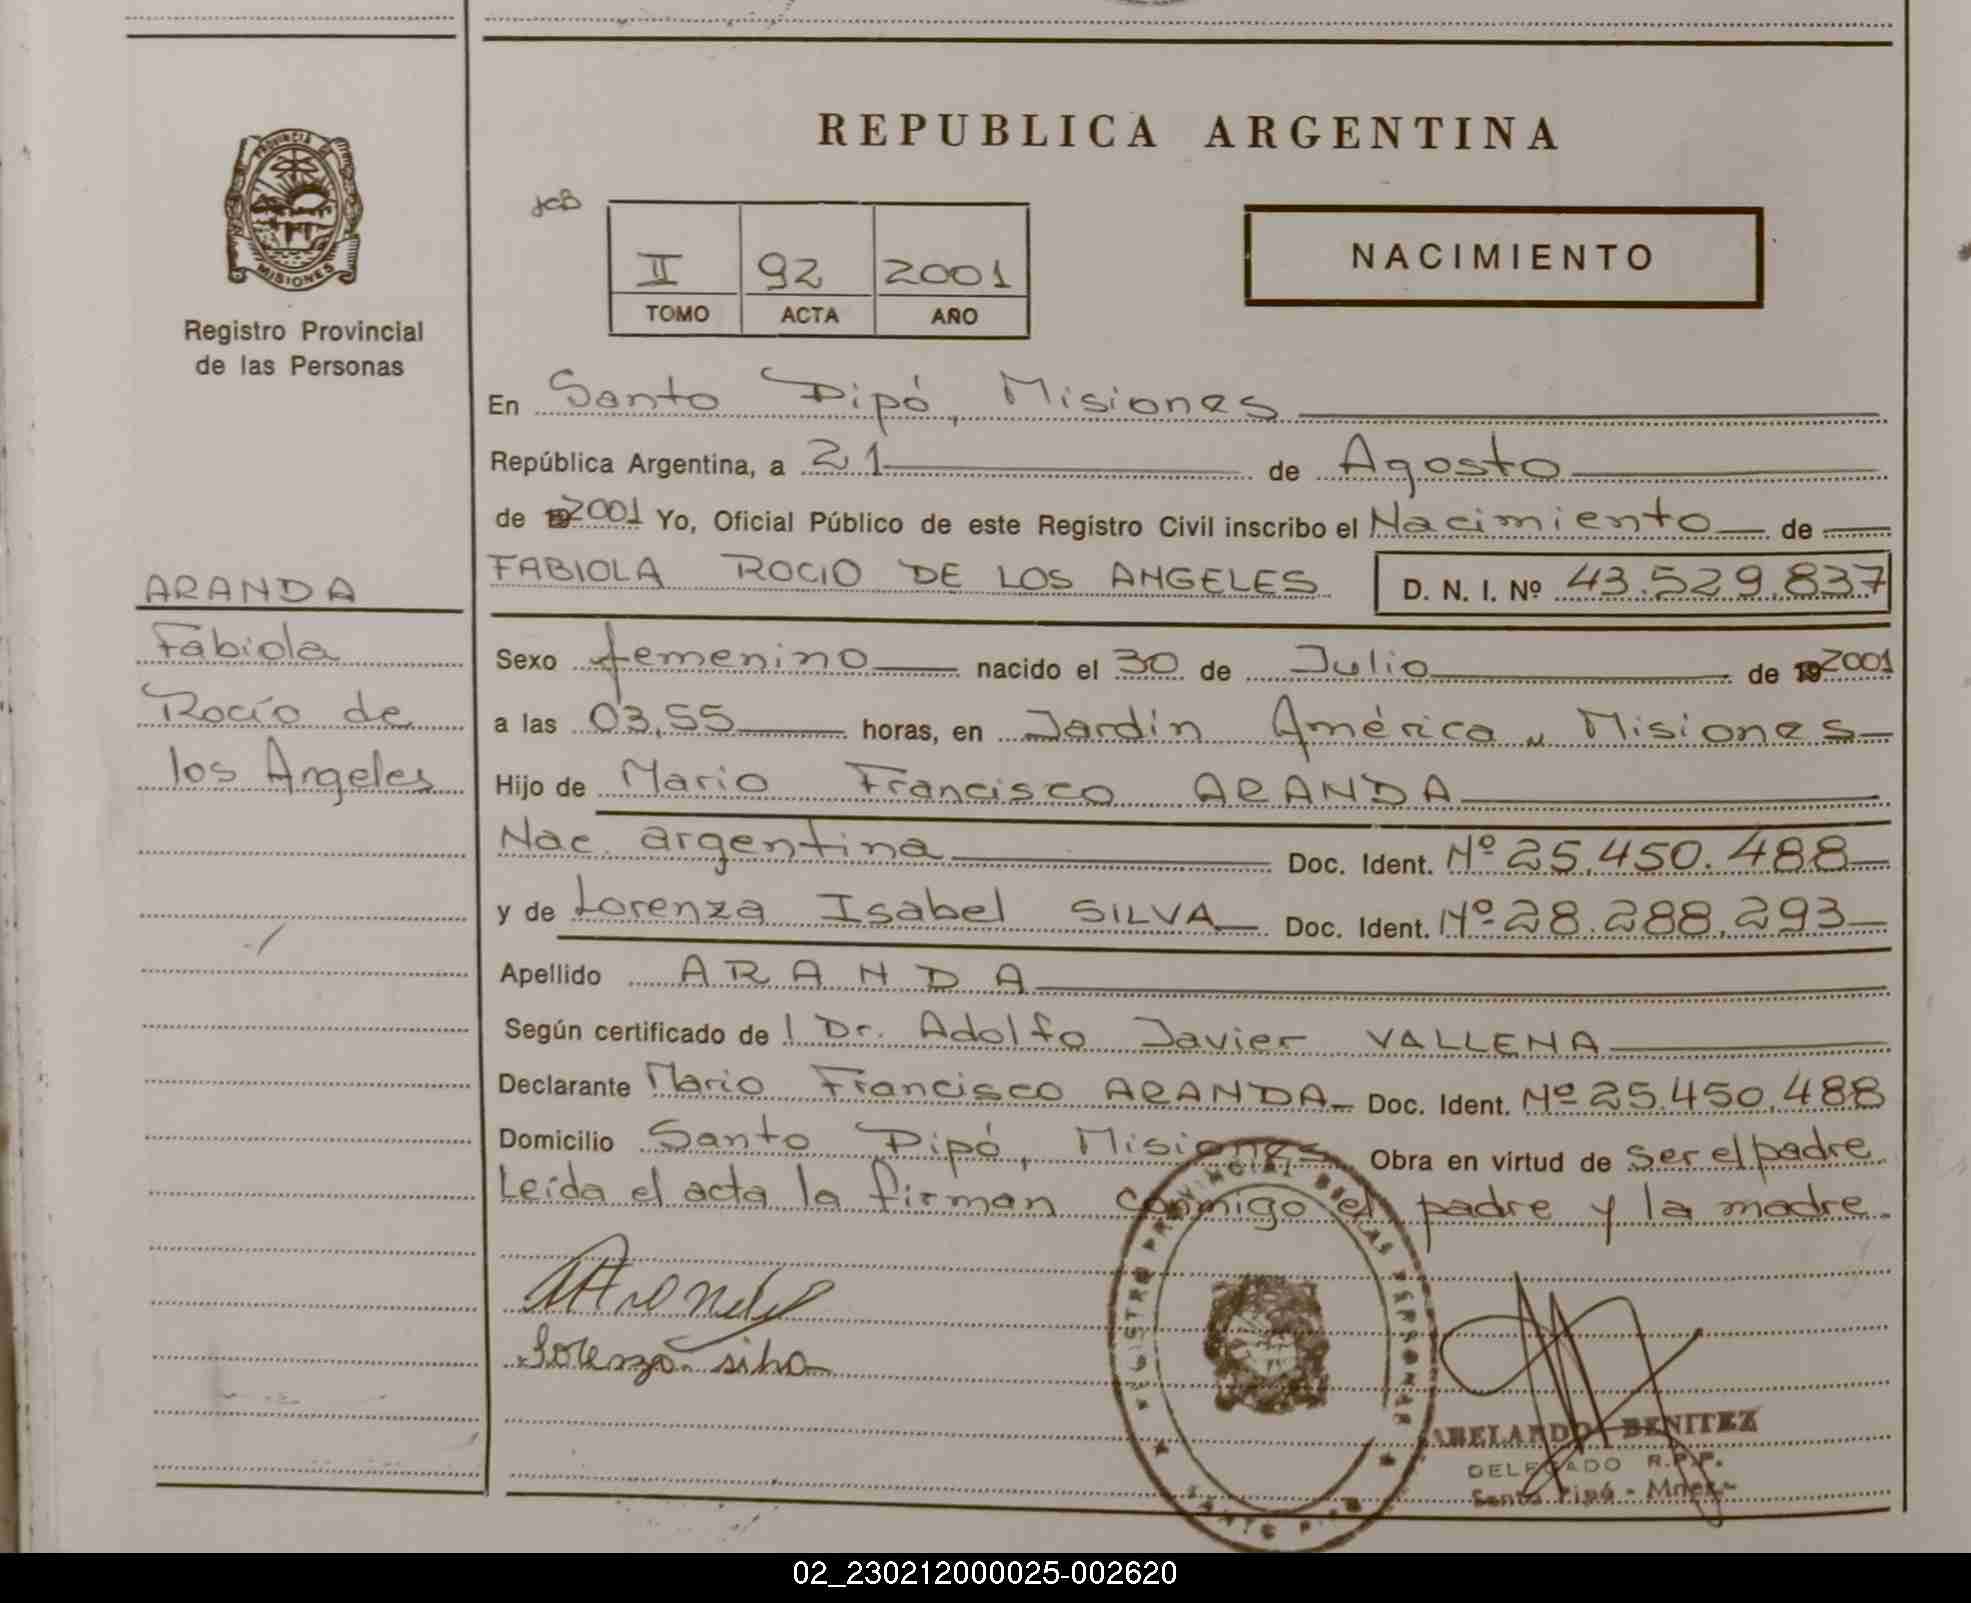 REPUBLICA ARGENTINA
PROVINCIA DE
MISIONES
Registro Provincial
de las Personas
JCB
II 92 2001
TOMO ACTA AÑO
NACIMIENTO
En Santo Pipó, Misiones
República Argentina, a 21 de Agosto
de 19 2001 Yo, Oficial Público de este Registro Civil inscribo el Nacimiento de
FABIOLA ROCIO DE LOS ANGELES D. N. I. Nº 43.529.837
ARANDA
Fabiola
Rocío de
los Angeles
Sexo femenino nacido el 30 de Julio de 19 2001
a las 03,55 horas, en Jardín América, Misiones
Hijo de Mario Francisco ARANDA
Nac. argentina Doc. Ident. Nº 25.450.488
y de Lorenza Isabel SILVA Doc. Ident. Nº 28.288.293
Apellido ARANDA
Según certificado de l Dr. Adolfo Javier VALLENA
Declarante Mario Francisco ARANDA Doc. Ident. Nº 25.450.488
Domicilio Santo Pipó, Misiones Obra en virtud de ser el padre
Leída el acta la firman conmigo el padre y la madre.
Lorenza silva
REGISTRO PROVINCIAL DE LAS PERSONAS
SANTO PIPO
ABELARDO BENITEZ
DELEGADO R.P.P.
Santo Pipó - Mnes.-
02_230212000025-002620